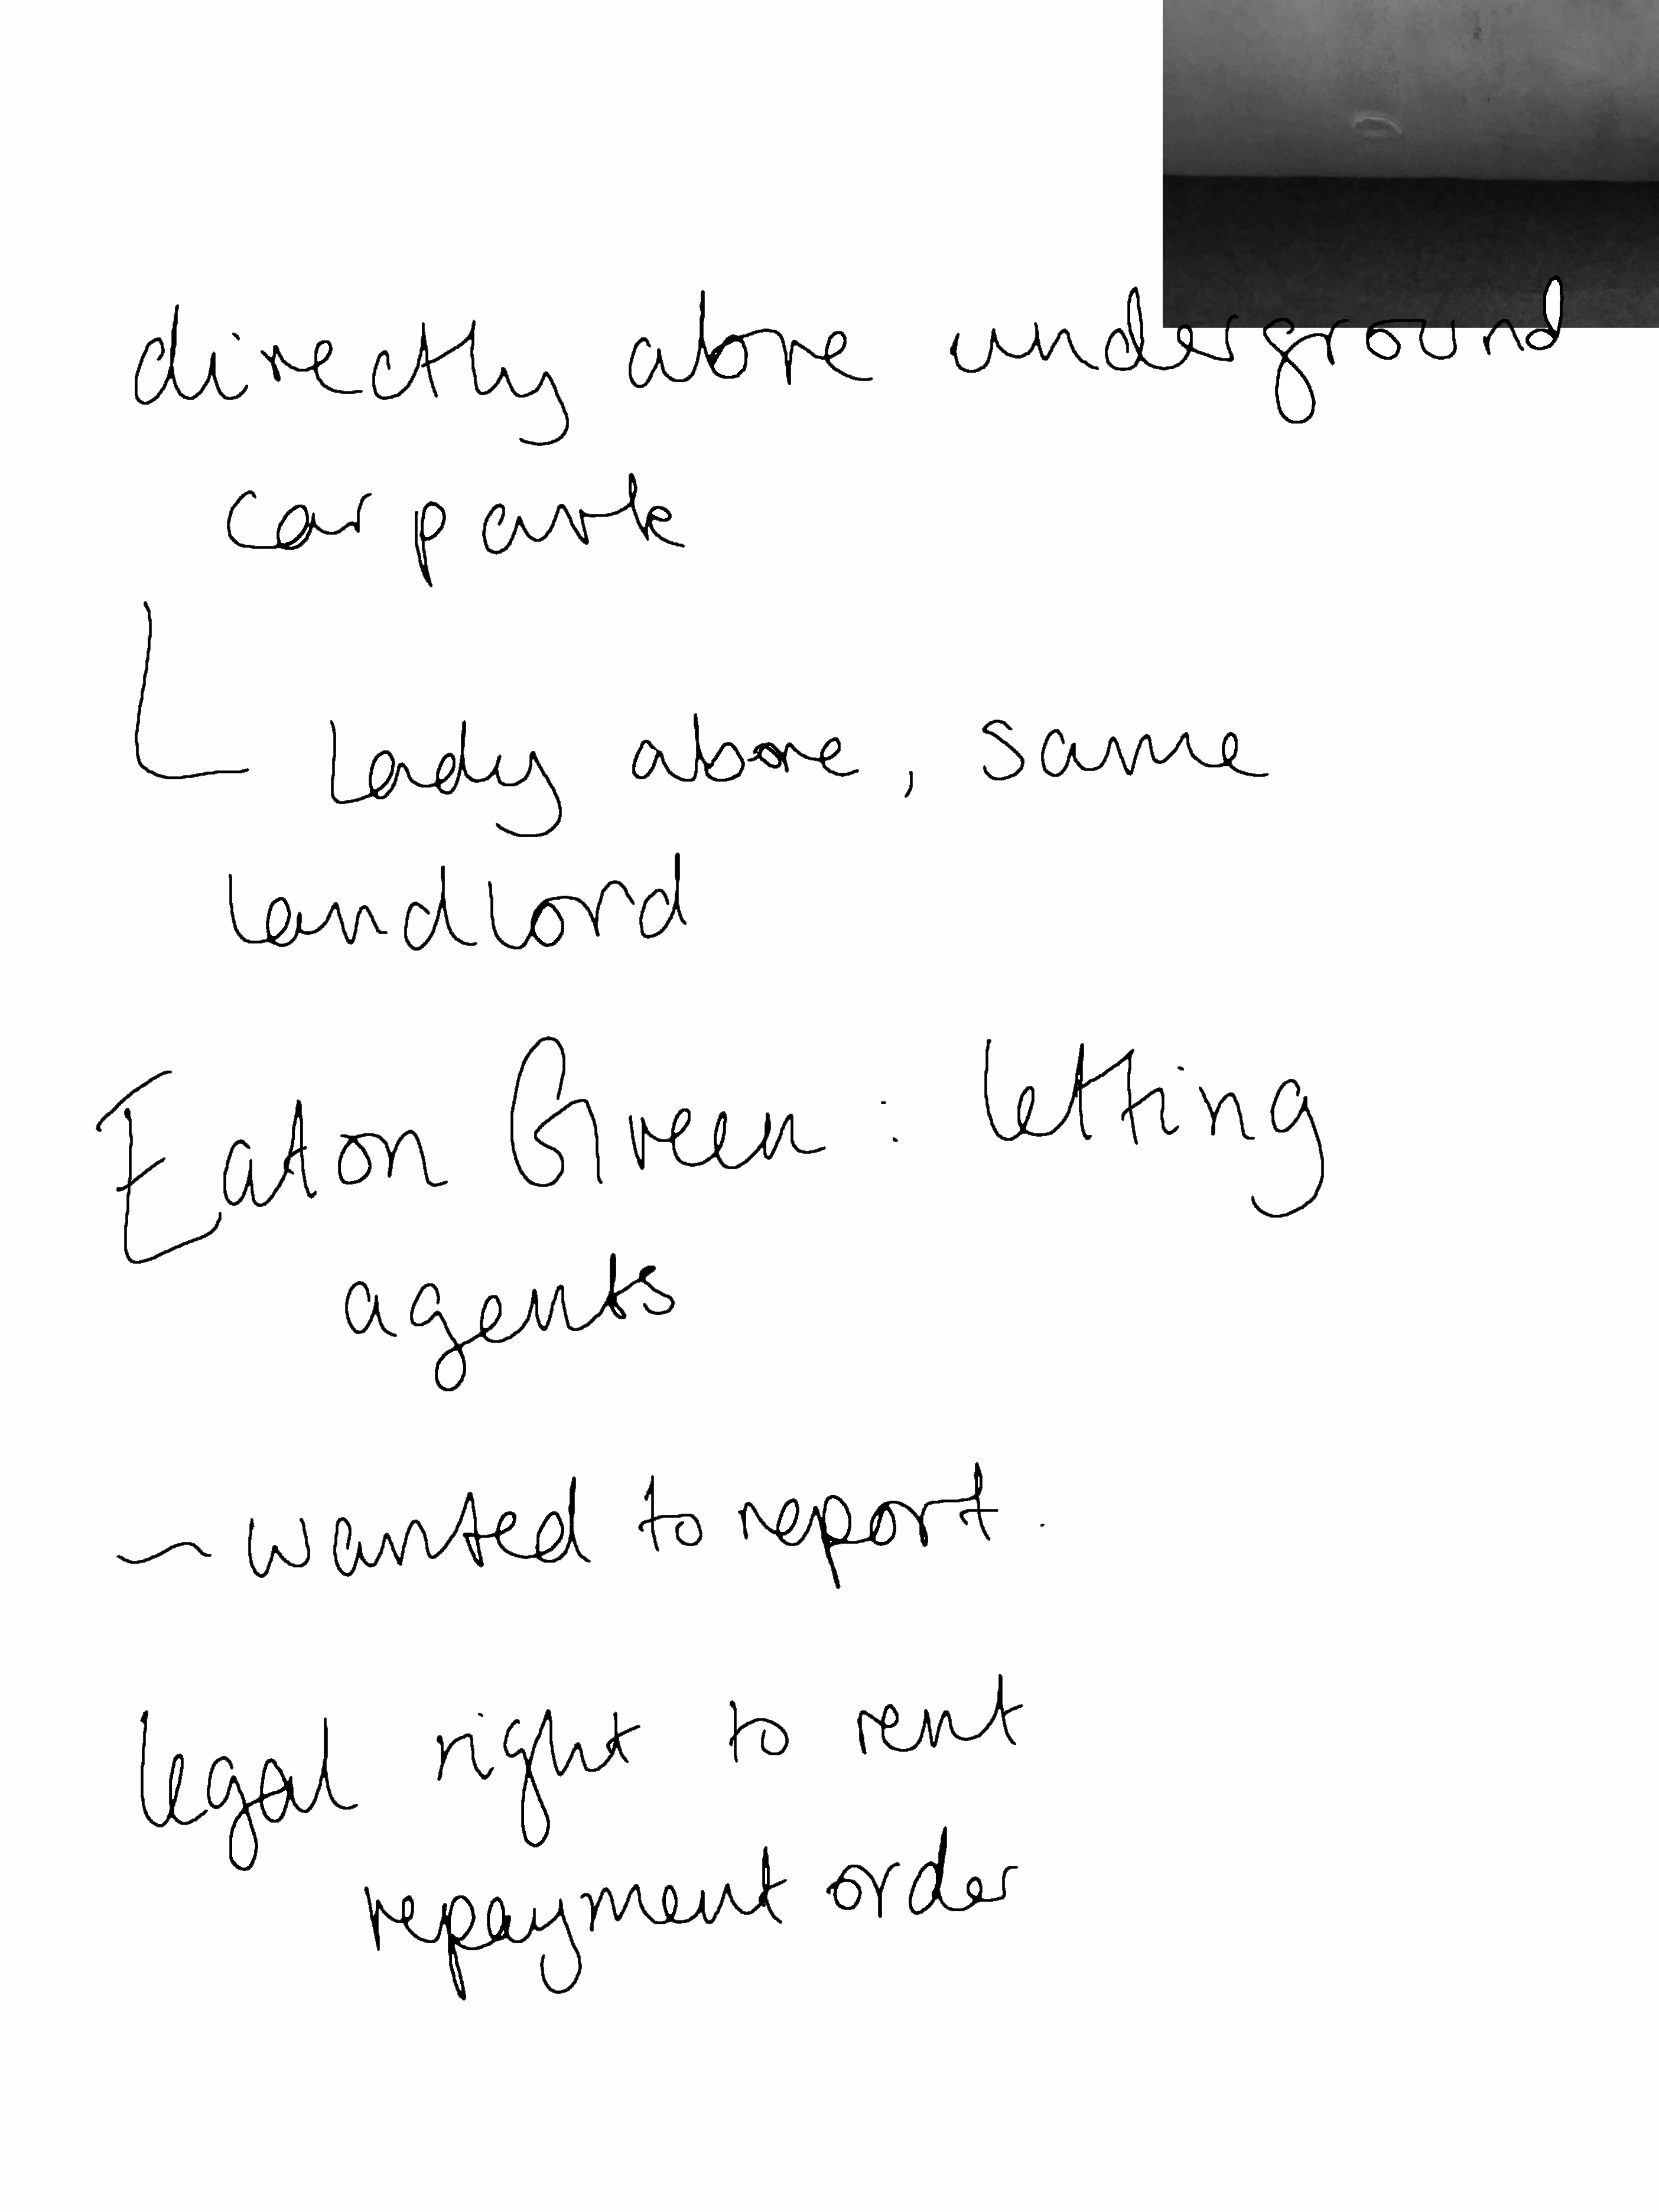 directly above underground
car park
Lady above, same
landlord
Eaton Green : letting
agents
~ wanted to report.
legal right to rent
repayment order